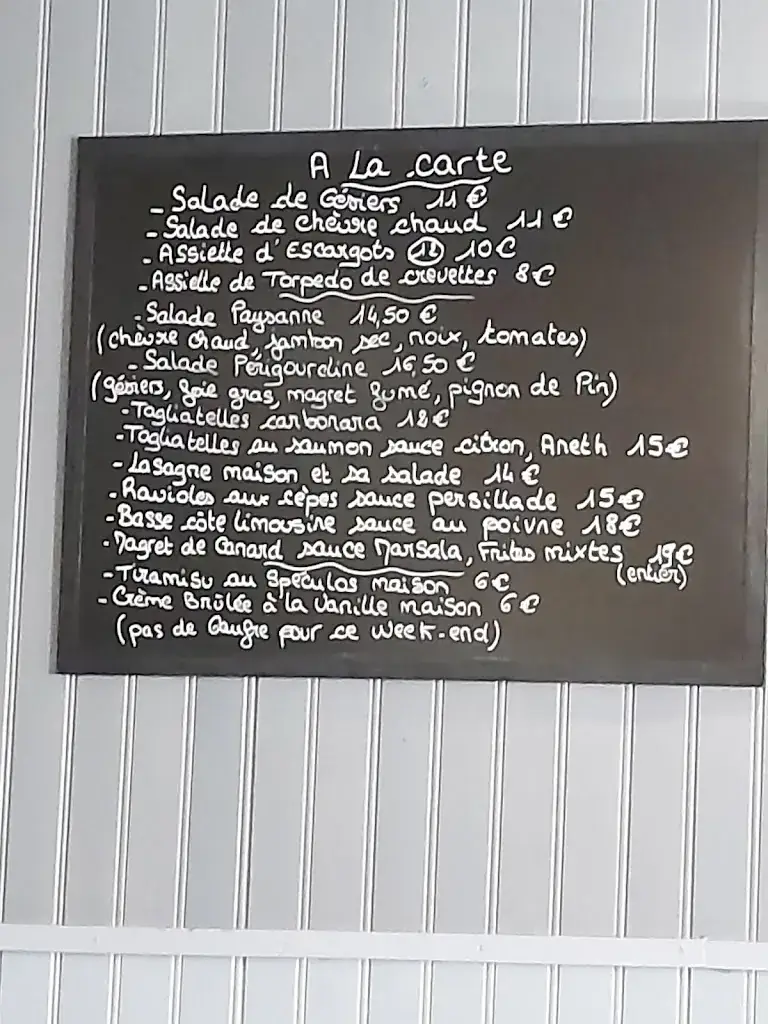 A La carte
- Salade de Gésiers 11 €
- Salade de chèvre chaud 11 €
- Assiette d'Escargots (12) 10€
- Assiette de Torpedo de crevettes 8€
- Salade Paysanne 14,50 €
(chèvre chaud, jambon sec, noix, tomates)
- Salade Périgourdine 16,50 €
(gésiers, foie gras, magret fumé, pignon de Pin)
- Tagliatelles carbonara 12€
- Tagliatelles au saumon sauce citron, Aneth 15€
- Lasagne maison et sa salade 14 €
- Ravioles aux cèpes sauce persillade 15€
- Basse côte limousine sauce au poivre 18€
- Magret de Canard sauce Marsala, Frites mixtes 19€
(entier)
- Tiramisu au Spéculos maison 6€
- Crème Brûlée à la Vanille maison 6€
(pas de Gaufre pour ce week-end)